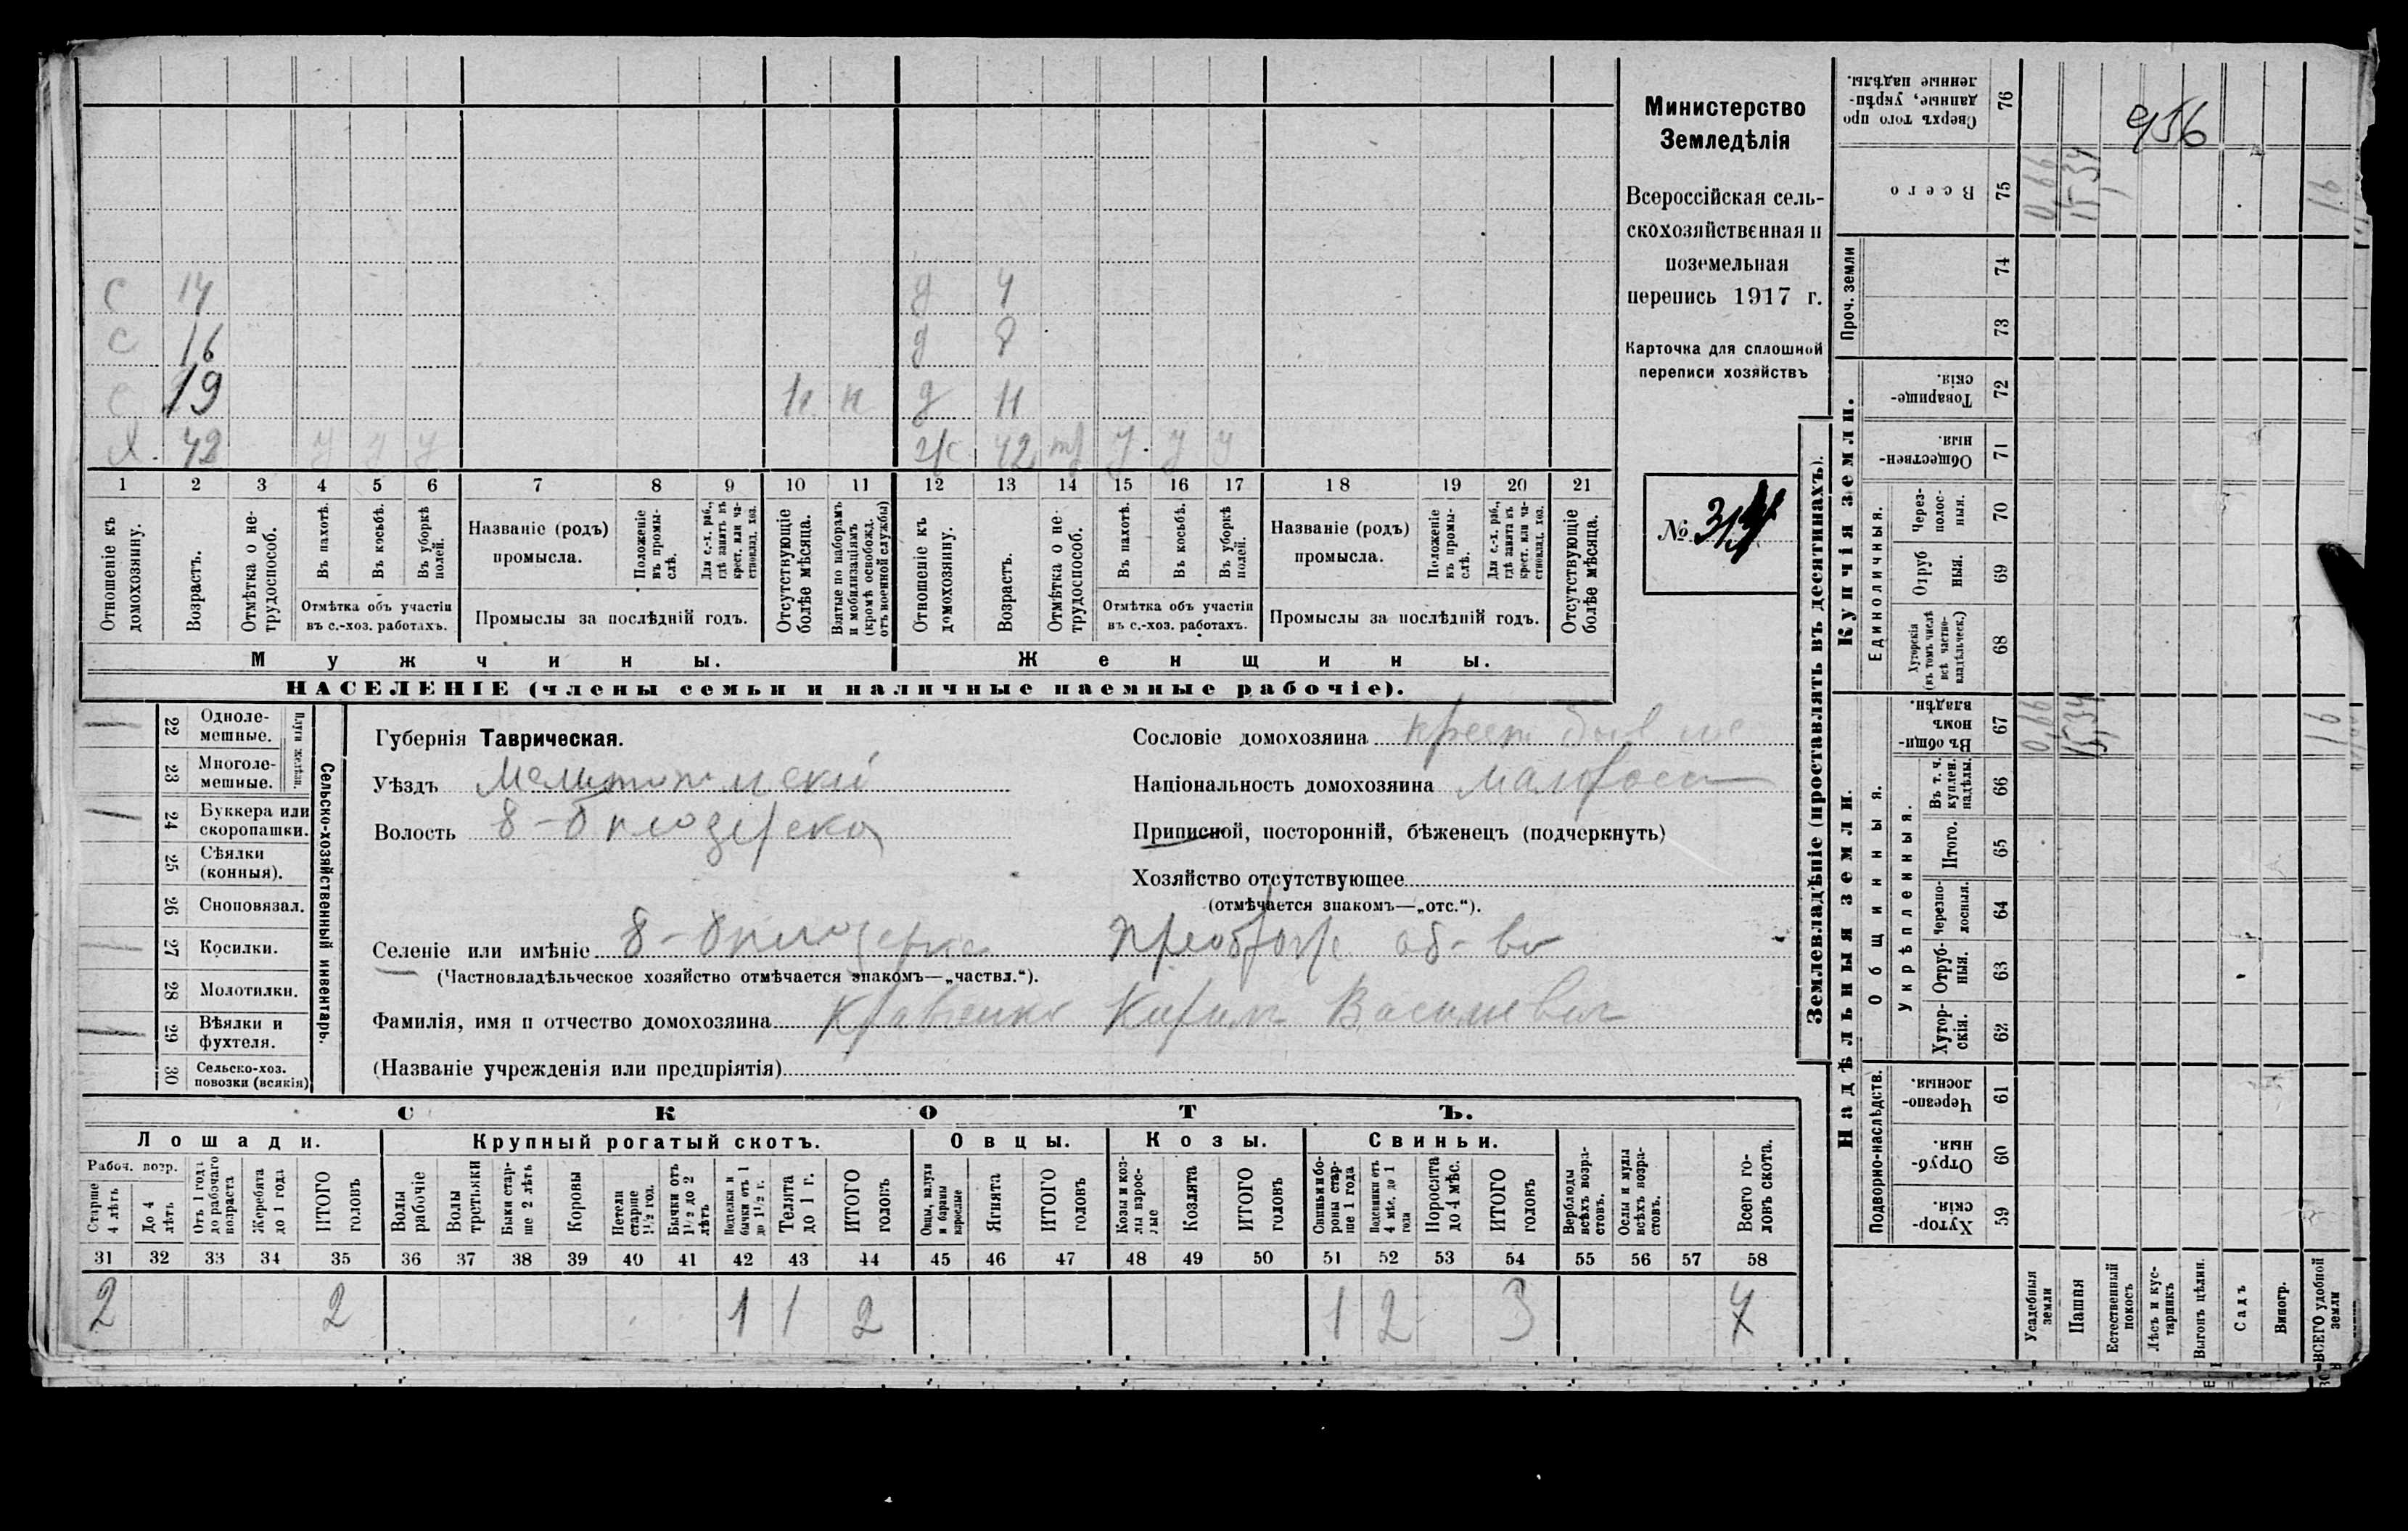 с 14 д 4
с 16 д 8
с 19 н н д 11
х. 42 у у у ж 42 у у у
1 2 3 4 5 6 7 8 9 10 11 12 13 14 15 16 17 18 19 20 21
Отношеніе къ домохозяину.
Возрастъ.
Отмѣтка о не-трудоспособ.
Въ пахотѣ.
Въ косьбѣ.
Въ уборкѣ полей.
Отмѣтка объ участіи въ с.-хоз. работахъ.
Названіе (родъ) промысла.
Положеніе въ промы-слѣ.
Для с.-х. раб., гдѣ занятъ въ крест. или ча-стновлад. хоз.
Промыслы за послѣдній годъ.
Отсутствующіе болѣе мѣсяца.
Взятые по наборамъ и мобилизаціямъ (кромѣ освобожд. отъ военной службы)
Отношеніе къ домохозяину.
Возрастъ.
Отмѣтка о не-трудоспособ.
Въ пахотѣ.
Въ косьбѣ.
Въ уборкѣ полей.
Отмѣтка объ участіи въ с.-хоз. работахъ.
Названіе (родъ) промысла.
Положеніе въ промы-слѣ.
Для с.-х. раб., гдѣ занятъ въ крест. или ча-стновлад. хоз.
Промыслы за послѣдній годъ.
Отсутствующіе болѣе мѣсяца.
Мужчины. Женщины.
НАСЕЛЕНІЕ (члены семьи и наличные наемные рабочіе).
Министерство
Земледѣлія
Всероссійская сель-
скохозяйственная и
поземельная
перепись 1917 г.
Карточка для сплошной
переписи хозяйствъ
№
22 Одноле-мешные.
23 Многоле-мешные.
24 Буккера или скоропашки.
25 Сѣялки (конныя).
26 Сноповязал.
27 Косилки.
28 Молотилки.
29 Вѣялки и фухтеля.
30 Сельско-хоз. повозки (всякія)
Сельско-хозяйственный инвентарь.
Губернія Таврическая.
Уѣздъ Мелитопольскій
Волость
Сословіе домохозяина крест
Національность домохозяина малоросс
Приписной, посторонній, бѣженецъ (подчеркнуть)
Хозяйство отсутствующее
(отмѣчается знакомъ—„отс.“).
Селеніе или имѣніе об-во
(Частновладѣльческое хозяйство отмѣчается знакомъ—„частвл.“).
Фамилія, имя и отчество домохозяина Кравченко Кирилъ Васильевич
(Названіе учрежденія или предпріятія)
СКОТЪ.
Лошади. Крупный рогатый скотъ. Овцы. Козы. Свиньи.
Рабоч. возр.
Старше 4 лѣтъ
До 4 лѣтъ
Отъ 1 года до рабочаго возраста
Жеребята до 1 года
ИТОГО головъ
Волы рабочіе
Волы третьяки
Быки стар-ше 2 лѣтъ
Коровы
Нетели старше 1½ год.
Бычки отъ 1½ до 2 лѣтъ
Нетельки и бычки отъ 1 до 1½ г.
Телята до 1 г.
ИТОГО головъ
Овцы, валухи и бараны взрослые
Ягнята
ИТОГО головъ
Козы и коз-лы взрос-лые
Козлята
ИТОГО головъ
Свиньи и бо-роны стар-ше 1 года
Подсвинки отъ 4 мѣс. до 1 года
Поросята до 4 мѣс.
ИТОГО головъ
Верблюды всѣхъ возра-стовъ.
Ослы и мулы всѣхъ возра-стовъ.
Всего го-ловъ скота.
31 32 33 34 35 36 37 38 39 40 41 42 43 44 45 46 47 48 49 50 51 52 53 54 55 56 57 58
2 2 1 1 2 1 2 3 7
Землевладѣніе (проставлять въ десятинахъ).
Надѣльныя земли. Купчія земли. Проч. земли
Подворно-наслѣдств. Общинныя. Единоличныя.
Укрѣпленныя.
Хутор-скія. 59
Отруб-ныя. 60
Черезпо-лосныя. 61
Хутор-скія. 62
Отруб-ныя. 63
черезпо-лосныя. 64
Итого. 65
Въ т. ч. куплен. надѣлы. 66
Въ общи-номъ владѣн. 67
Хуторскія (въ томъ числѣ всѣ частно-владѣльческ.) 68
Отруб ныя. 69
Через-полос-ныя. 70
Обществен-ныя. 71
Товарище-скія. 72
73
74
Всего 75
Сверхъ того про данные, укрѣп-ленные надѣлы. 76
956
0,66 15,34 16
0,66 15,34 16
Усадебныя земли
Пашня
Естественный покосъ
Лѣсъ и кус-тарникъ
Выгонъ цѣлин.
Садъ
Виногр.
ВСЕГО удобной земли